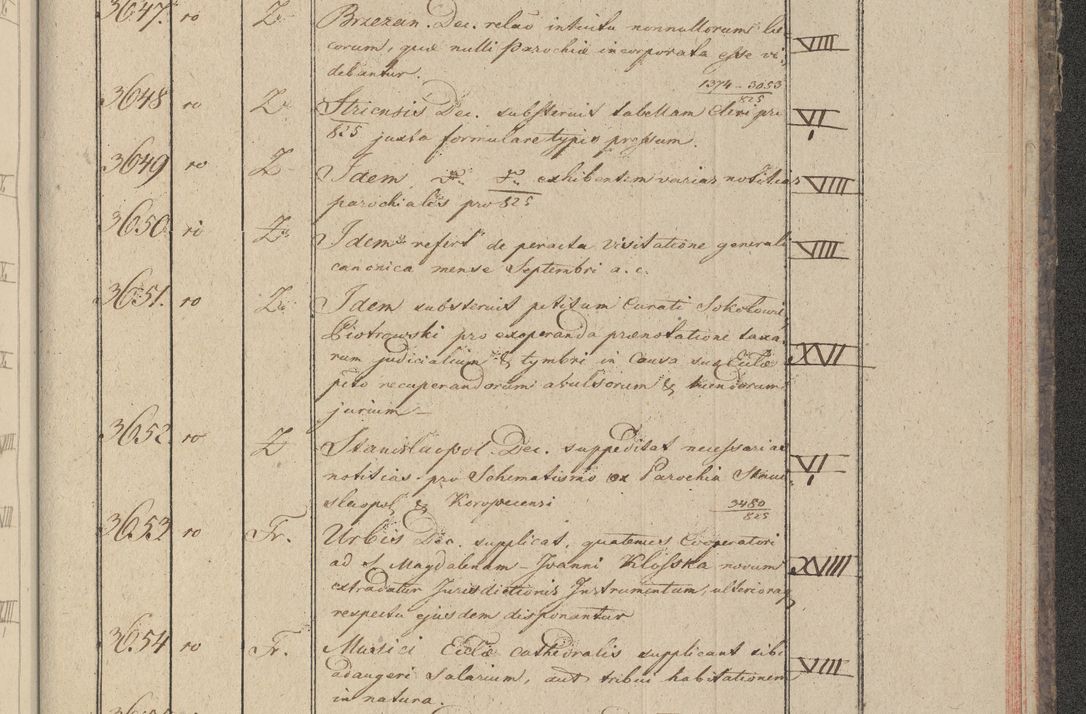 3647. ro Z Brzezan. Dec. relao intuitu nonnullorum lo-
corum, quæ nulli Parochiæ incorporata esse vi- VIII
debantur.
1374 - 3053
825
3648 ro Z Striensis Dec. substernit tabellam Cleri pro VI
825 juxta formulare typis pressum.
3649 ro Z Idem exhibentem varias notitias VIII
parochiales pro 825
3650 ro Z Idem refert de peracta visitatione generali VIII
canonica mense Septembri a. c.
3651. ro Z Idem substernit petitum Curati Sokolovi.
Piotrowski pro exoperanda prænotatione taxa-
rum judicialium & tymbri in Causa suæ Eclæ XVI
recuperandorum avulsorum &
jurium -
3652 ro Z Stanislaopol. Dec. suppeditat necessarias
notitias pro Schematismo ex Parochia Stani- VI
slaopol & Koropecensi
3480
825
3653 ro Fr. Urbis Dec. supplicat, quatenus Cooperatori
ad S. Magdalenam - Joanni Klosska novum XVIII
extradatur Jurisdictionis Instrumentum, ulterioraq
respectu ejusdem disponantur
3654 ro Fr. Musici Eclæ cathedralis supplicant sibi
adaugeri Salarium, aut tribui habitationem VIII
in natura.